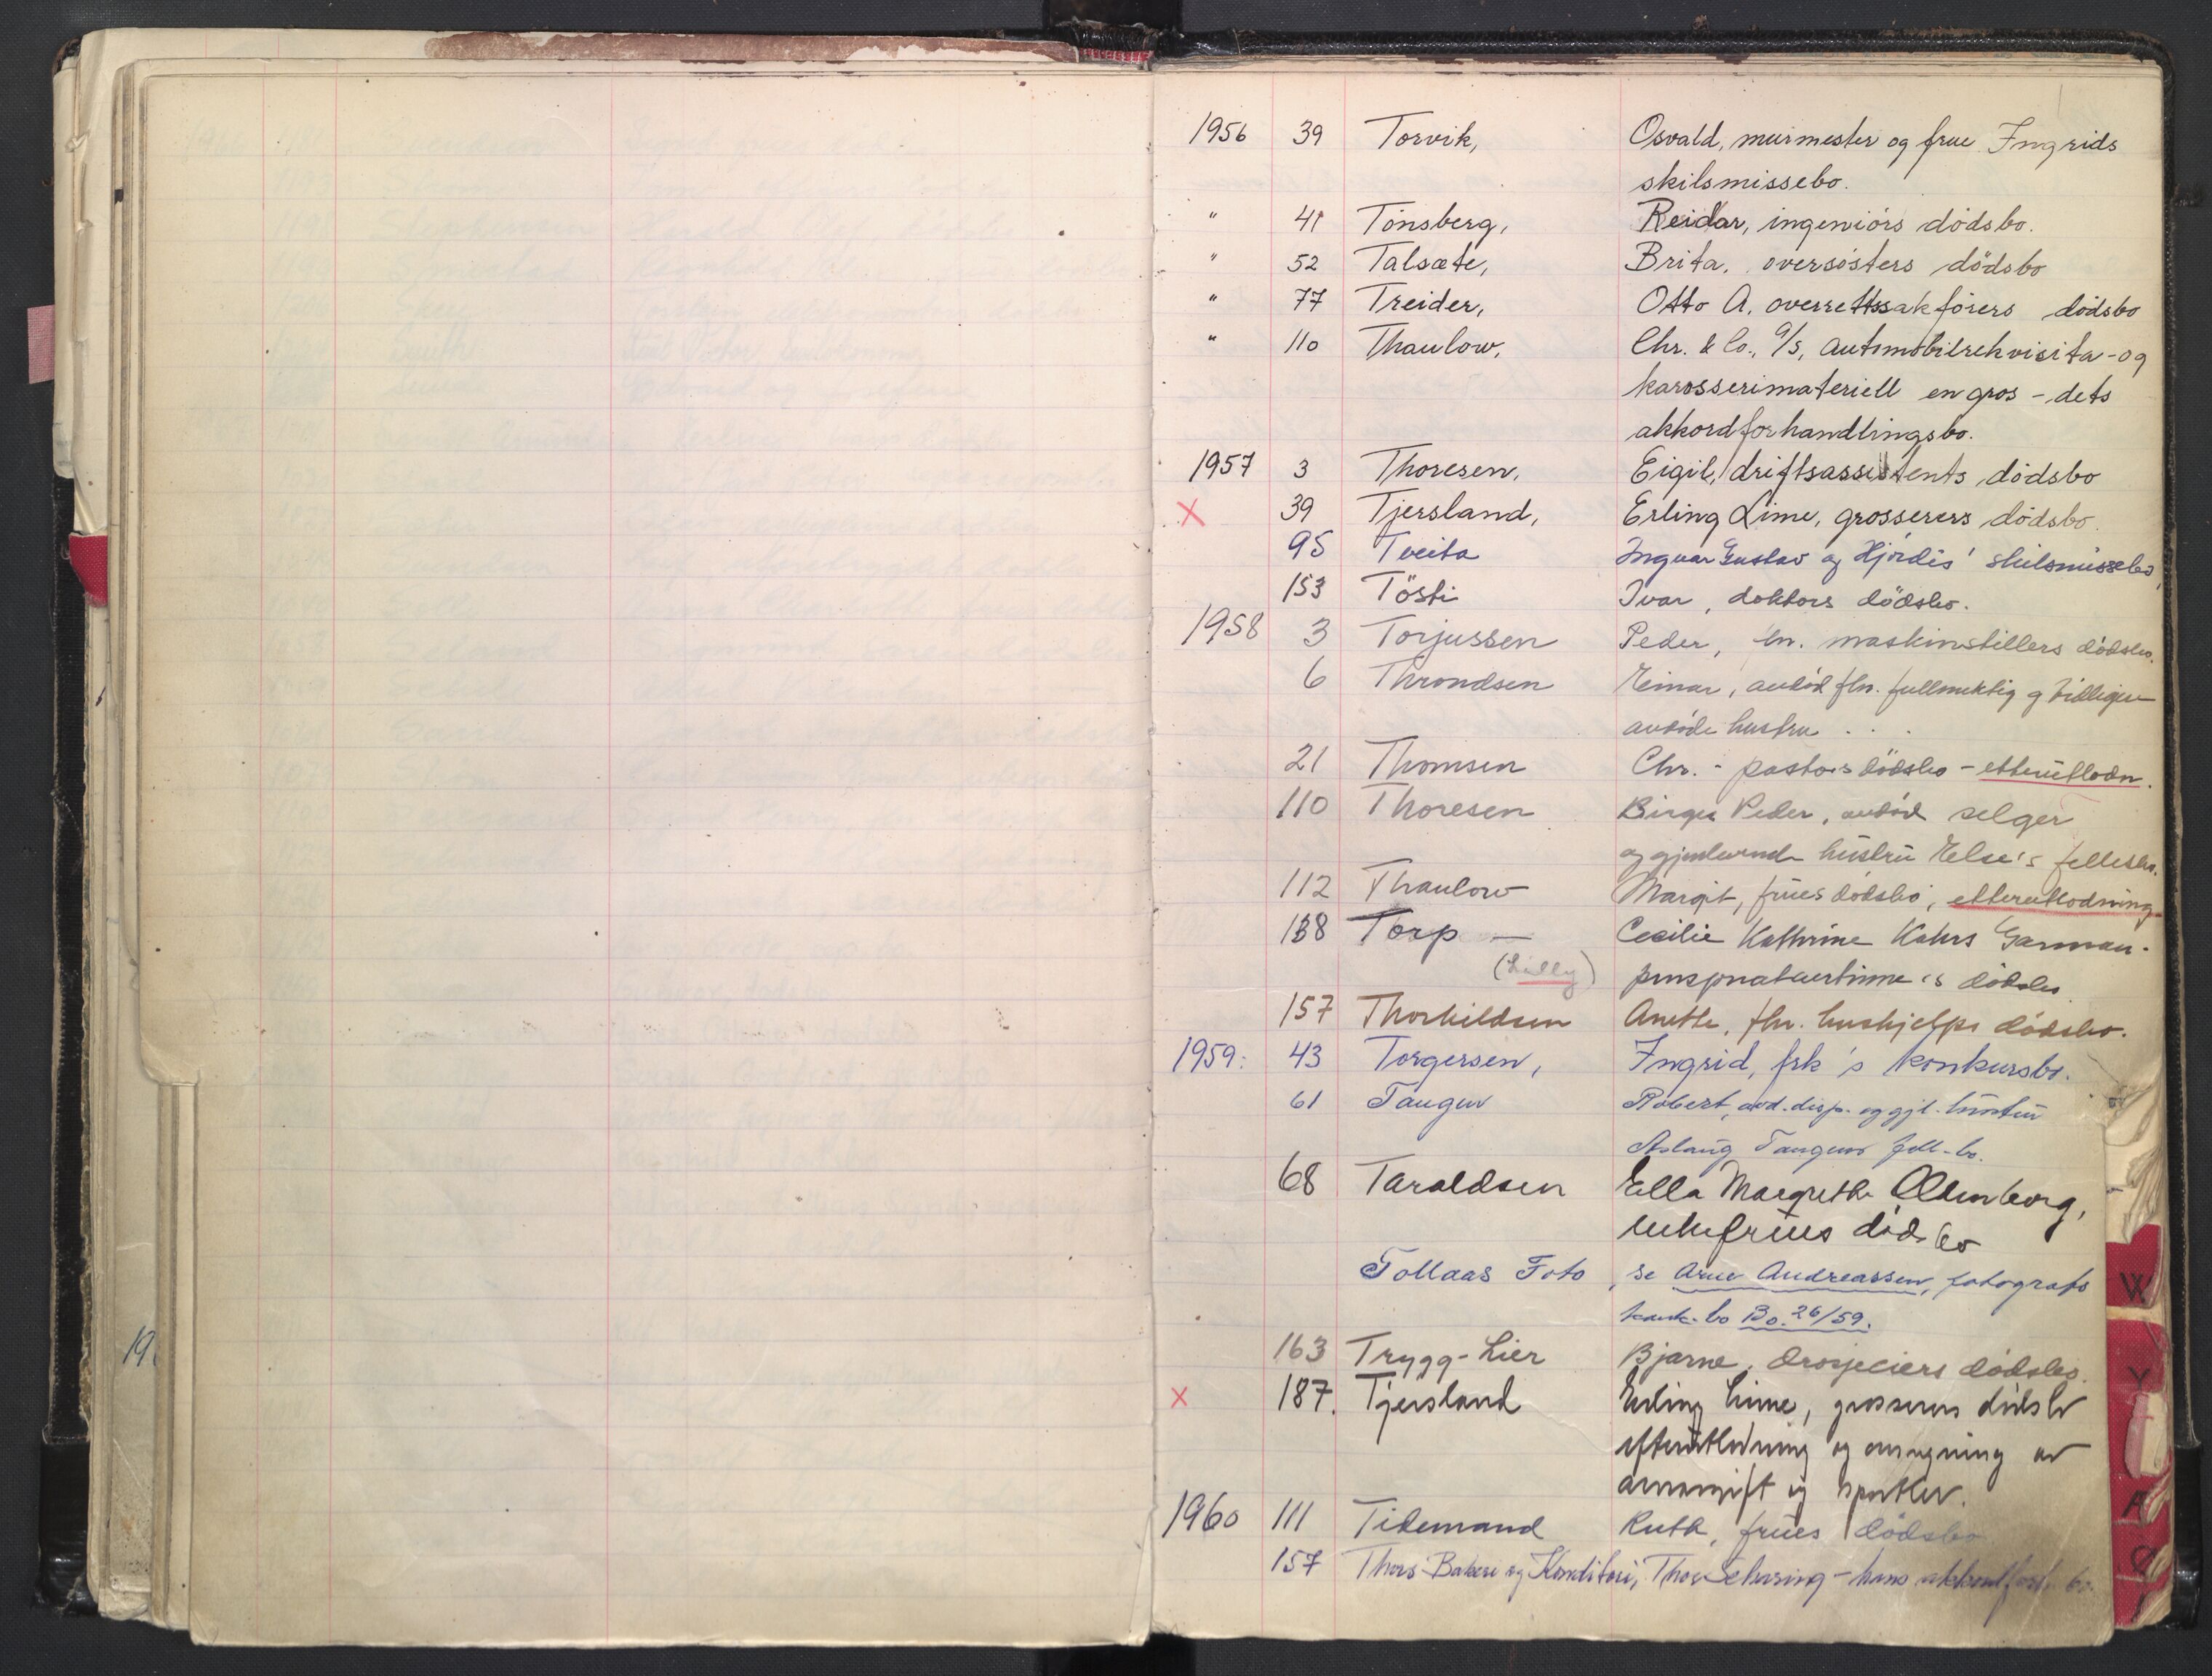 1956 39 Torvik, Osvald, murmester og frue Ingrids
skilsmissebo.
" 41 Tönsberg, Reidar, ingeniörs dödsbo.
" 52 Talsæte, Brita, oversösters dödsbo
" 77 Treider, Otto A. overrettssakförers dödsbo
" 110 Thaulow, Chr. & Co., A/S, Automobilrekvisita- og
karosserimateriell en gros - dets
akkordforhandlingsbo.
1957 3 Thoresen, Eigil, driftsassistents dödsbo
X 39 Tjersland, Erling Lime, grosserers dödsbo.
95 Tveita Ingvar Gustav og Hjördis' skilsmissebo,
153 Tösti Ivar, doktors dödsbo.
1958 3 Torjussen Peder, fhv. maskinstillers dödsbo.
6 Throndsen Einar, avdöd fhv. fullmektig og tidligere
avdöde hustru . . .
21 Thomsen Chr. - pastors dödsbo - etterutlodn.
110 Thoresen Birger Peder, avdöd selger
og gjenlevende hustru Else's fellesbo.
112 Thaulow Margit, frues dödsbo, etterutlodning
138 Torp — Cecilie Kathrine Kahrs Garman-
(Lilly) pensjonatvertinne's dödsbo
157 Thorkildsen Anethe, fhv. hushjelps dödsbo.
1959: 43 Torgersen, Ingrid, frk's konkursbo.
61 Tangen Robert, avd. disp. og gjl. hustru
Aslaug Tangens fell.bo.
68 Taraldsen Ella Margrethe Oldenborg,
enkefrues dödsbo
Tollaas Foto, se Arne Andreassen, fotografs
konk.bo Bo. 26/59.
163 Trygg-Lier Bjarne, drosjeeiers dödsbo.
X 187. Tjersland Erling Lime, grosserers dödsbo
efterutlodning og omregning av
arveavgift og sportler.
1960 111 Tidemand Ruth, frues dödsbo
157 Thors Bakeri og Konditori, Thor Sehusing - hans akkordforh. bo.
W
Y
Æ
Ø